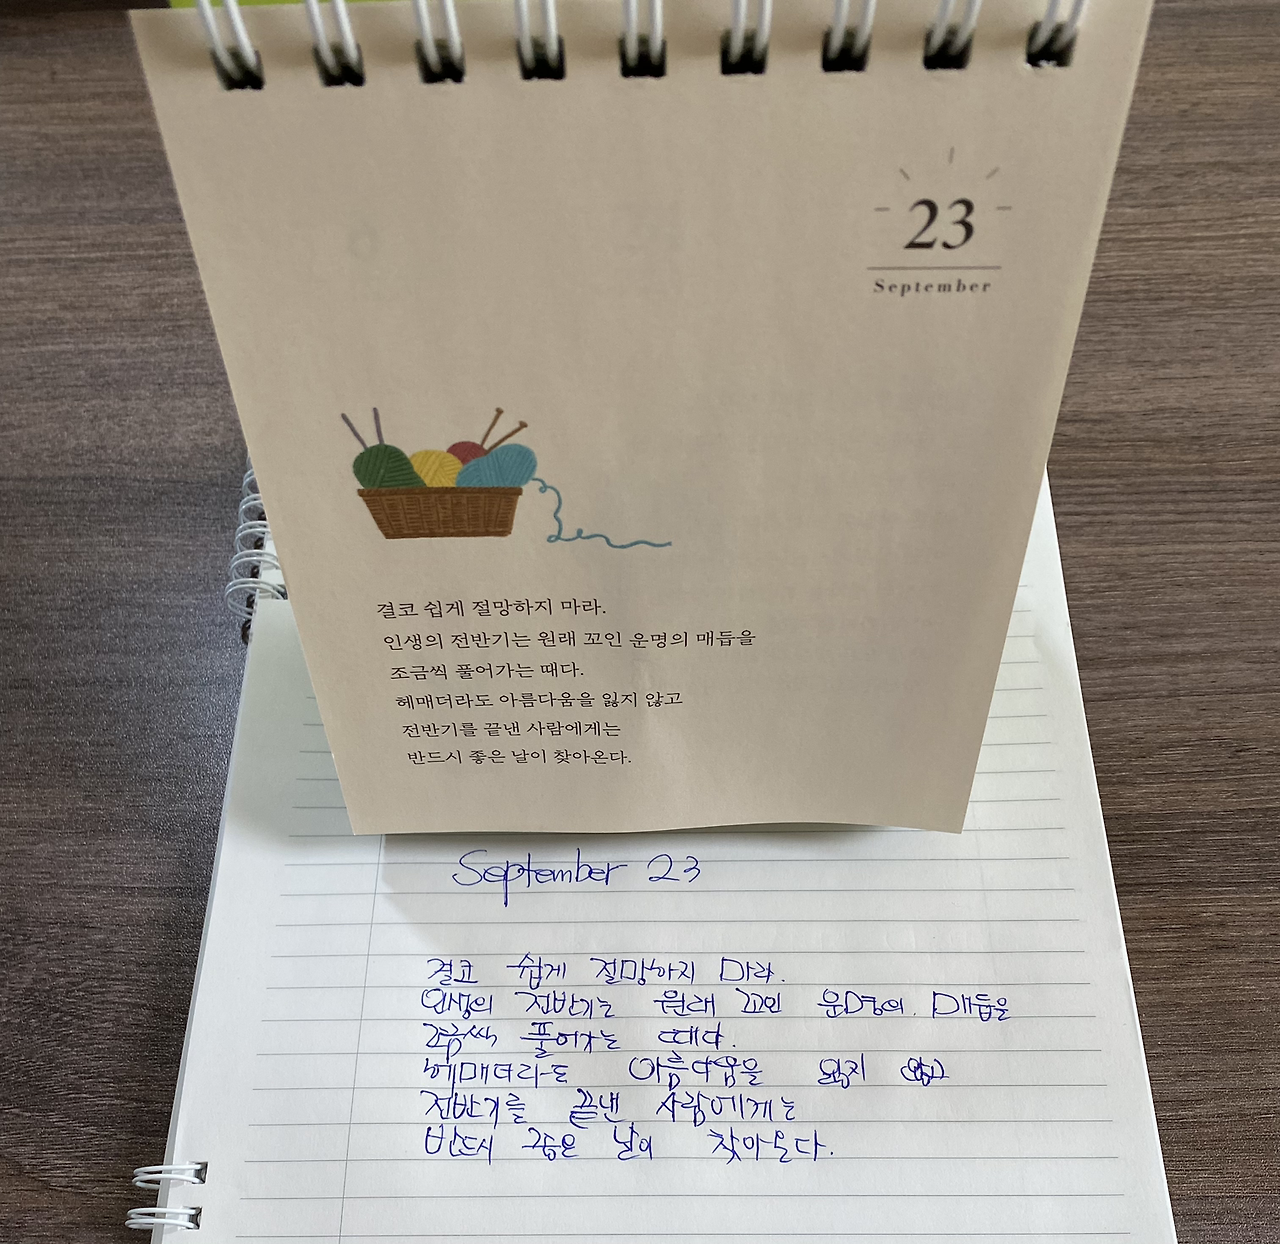 23
September
결코 쉽게 절망하지 마라.
인생의 전반기는 원래 꼬인 운명의 매듭을
조금씩 풀어가는 때다.
헤매더라도 아름다움을 잃지 않고
전반기를 끝낸 사람에게는
반드시 좋은 날이 찾아온다.
September 23
결코 쉽게 절망하지 마라.
인생의 전반기는 원래 꼬인 운명의 매듭을
조금씩 풀어가는 때다.
헤매더라도 아름다움을 잃지 않고
전반기를 끝낸 사람에게는
반드시 좋은 날이 찾아온다.